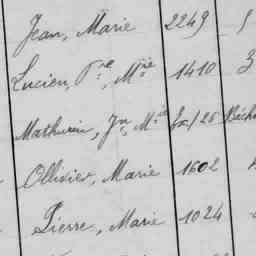 Jean, Marie 2249 5
Lucien, Pre, Mrie 1410 3
Mathurin, Jn, Mie Ex/26
Ollivier, Marie 1602
Pierre, Marie 1024